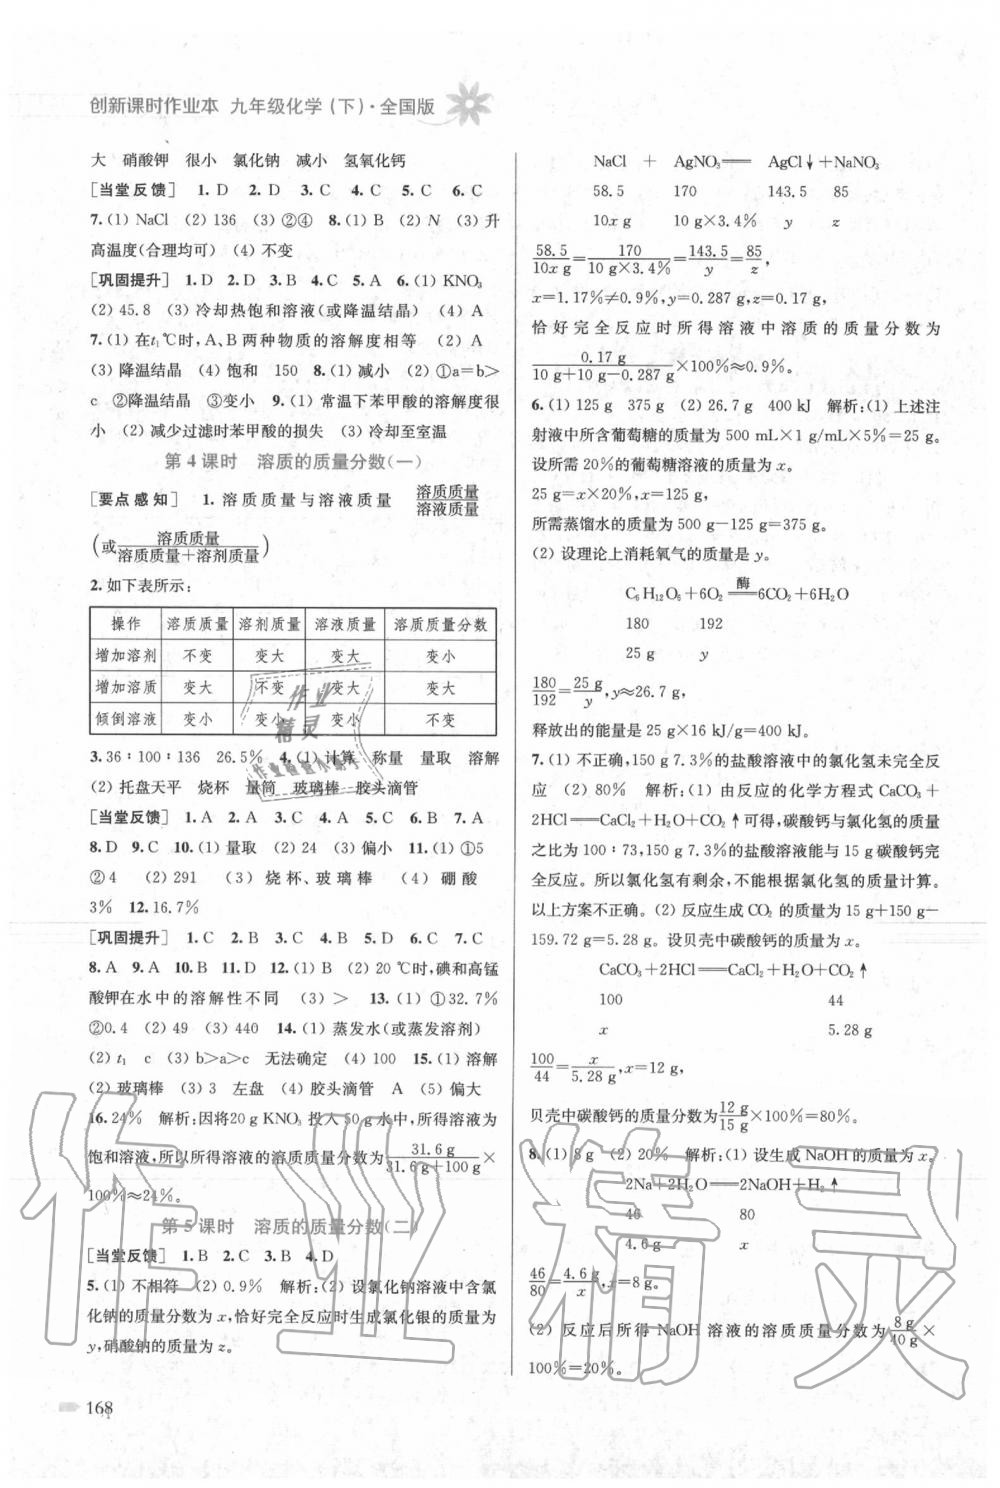 创新课时作业本 九年级化学(下)·全国版
大 硝酸钾 很小 氯化钠 减小 氢氧化钙
[当堂反馈] 1. D 2. D 3. C 4. C 5. C 6. C
7. (1) NaCl (2) 136 (3) ②④ 8. (1) B (2) N (3) 升
高温度(合理均可) (4) 不变
[巩固提升] 1. D 2. D 3. B 4. C 5. A 6. (1) KNO₃
(2) 45.8 (3) 冷却热饱和溶液(或降温结晶) (4) A
7. (1) 在t₁℃时,A、B两种物质的溶解度相等 (2) A
(3) 降温结晶 (4) 饱和 150 8. (1) 减小 (2) ①a=b>
c ②降温结晶 ③变小 9. (1) 常温下苯甲酸的溶解度很
小 (2) 减少过滤时苯甲酸的损失 (3) 冷却至室温
第 4 课时 溶质的质量分数(一)
[要点感知] 1. 溶质质量与溶液质量 溶质质量/溶液质量
(或溶质质量/溶质质量+溶剂质量)
2. 如下表所示:
操作 溶质质量 溶剂质量 溶液质量 溶质质量分数
增加溶剂 不变 变大 变大 变小
增加溶质 变大 不变 变大 变大
倾倒溶液 变小 变小 变小 不变
3. 36∶100∶136 26.5% 4. (1) 计算 称量 量取 溶解
(2) 托盘天平 烧杯 量筒 玻璃棒 胶头滴管
[当堂反馈] 1. A 2. A 3. C 4. A 5. C 6. B 7. A
8. D 9. C 10. (1) 量取 (2) 24 (3) 偏小 11. (1) ①5
②4 (2) 291 (3) 烧杯、玻璃棒 (4) 硼酸
3% 12. 16.7%
[巩固提升] 1. C 2. B 3. B 4. D 5. C 6. C 7. C
8. A 9. A 10. B 11. D 12. (1) B (2) 20 ℃时,碘和高锰
酸钾在水中的溶解性不同 (3) > 13. (1) ①32.7%
②0.4 (2) 49 (3) 440 14. (1) 蒸发水(或蒸发溶剂)
(2) t₁ c (3) b>a>c 无法确定 (4) 100 15. (1) 溶解
(2) 玻璃棒 (3) 3 左盘 (4) 胶头滴管 A (5) 偏大
16. 24% 解析:因将20 g KNO₃ 投入50 g水中,所得溶液为
饱和溶液,所以所得溶液的溶质质量分数为31.6 g/31.6 g+100 g×
100%≈24%。
第 5 课时 溶质的质量分数(二)
[当堂反馈] 1. B 2. C 3. B 4. D
5. (1) 不相符 (2) 0.9% 解析:(2) 设氯化钠溶液中含氯
化钠的质量分数为 x,恰好完全反应时生成氯化银的质量为
y,硝酸钠的质量为 z。
168
NaCl + AgNO₃══AgCl↓+NaNO₃
58.5 170 143.5 85
10x g 10 g×3.4% y z
58.5/10x g=170/10 g×3.4%=143.5/y=85/z,
x=1.17%≠0.9%,y=0.287 g,z=0.17 g,
恰好完全反应时所得溶液中溶质的质量分数为
0.17 g/10 g+10 g-0.287 g×100%≈0.9%。
6. (1) 125 g 375 g (2) 26.7 g 400 kJ 解析:(1) 上述注
射液中所含葡萄糖的质量为 500 mL×1 g/mL×5%=25 g。
设所需 20%的葡萄糖溶液的质量为 x。
25 g=x×20%,x=125 g,
所需蒸馏水的质量为 500 g-125 g=375 g。
(2) 设理论上消耗氧气的质量是 y。
C₆H₁₂O₆+6O₂ 酶══6CO₂+6H₂O
180 192
25 g y
180/192=25 g/y,y≈26.7 g,
释放出的能量是 25 g×16 kJ/g=400 kJ。
7. (1) 不正确,150 g 7.3%的盐酸溶液中的氯化氢未完全反
应 (2) 80% 解析:(1) 由反应的化学方程式 CaCO₃+
2HCl══CaCl₂+H₂O+CO₂↑可得,碳酸钙与氯化氢的质量
之比为 100∶73,150 g 7.3%的盐酸溶液能与 15 g碳酸钙完
全反应。所以氯化氢有剩余,不能根据氯化氢的质量计算。
以上方案不正确。(2) 反应生成 CO₂ 的质量为 15 g+150 g-
159.72 g=5.28 g。设贝壳中碳酸钙的质量为 x。
CaCO₃+2HCl══CaCl₂+H₂O+CO₂↑
100 44
x 5.28 g
100/44=x/5.28 g,x=12 g,
贝壳中碳酸钙的质量分数为12 g/15 g×100%=80%。
8. (1) 8 g (2) 20% 解析:(1) 设生成 NaOH 的质量为 x。
2Na+2H₂O══2NaOH+H₂↑
46 80
4.6 g x
46/80=4.6 g/x,x=8 g。
(2) 反应后所得 NaOH 溶液的溶质质量分数为8 g/40 g×
100%=20%。
作业精灵